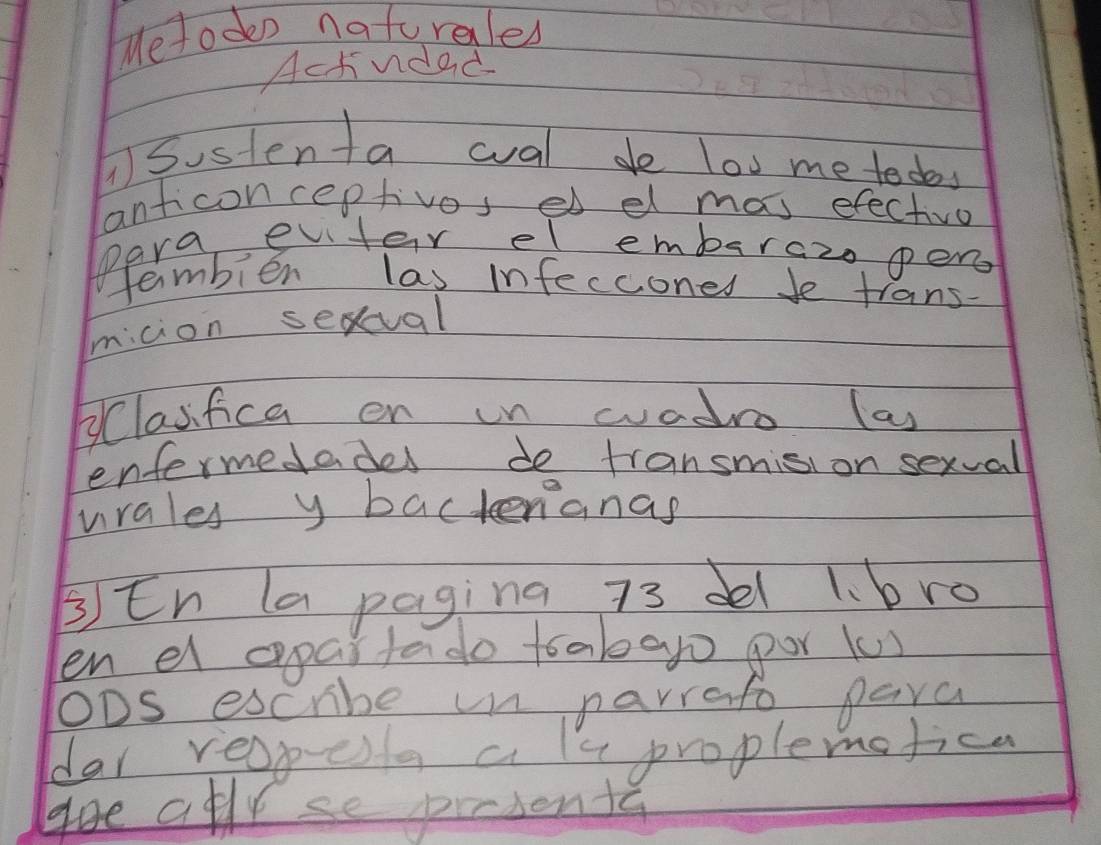 Metodos naturales
Actividad
1) Sustenta cual de los metodos
anticonceptivos es el mas efectivo
para evitar el embarazo pero
tambien las infecciones de trans-
micion sexual
2) Clasifica en un cuadro las
enfermedades de transmision sexual
virales y bacterianas
3) En la pagina 73 del libro
en el apartado trabajo por los
ODS escribe un parrafo para
dar respuesta a la proplematica
que alli se presenta